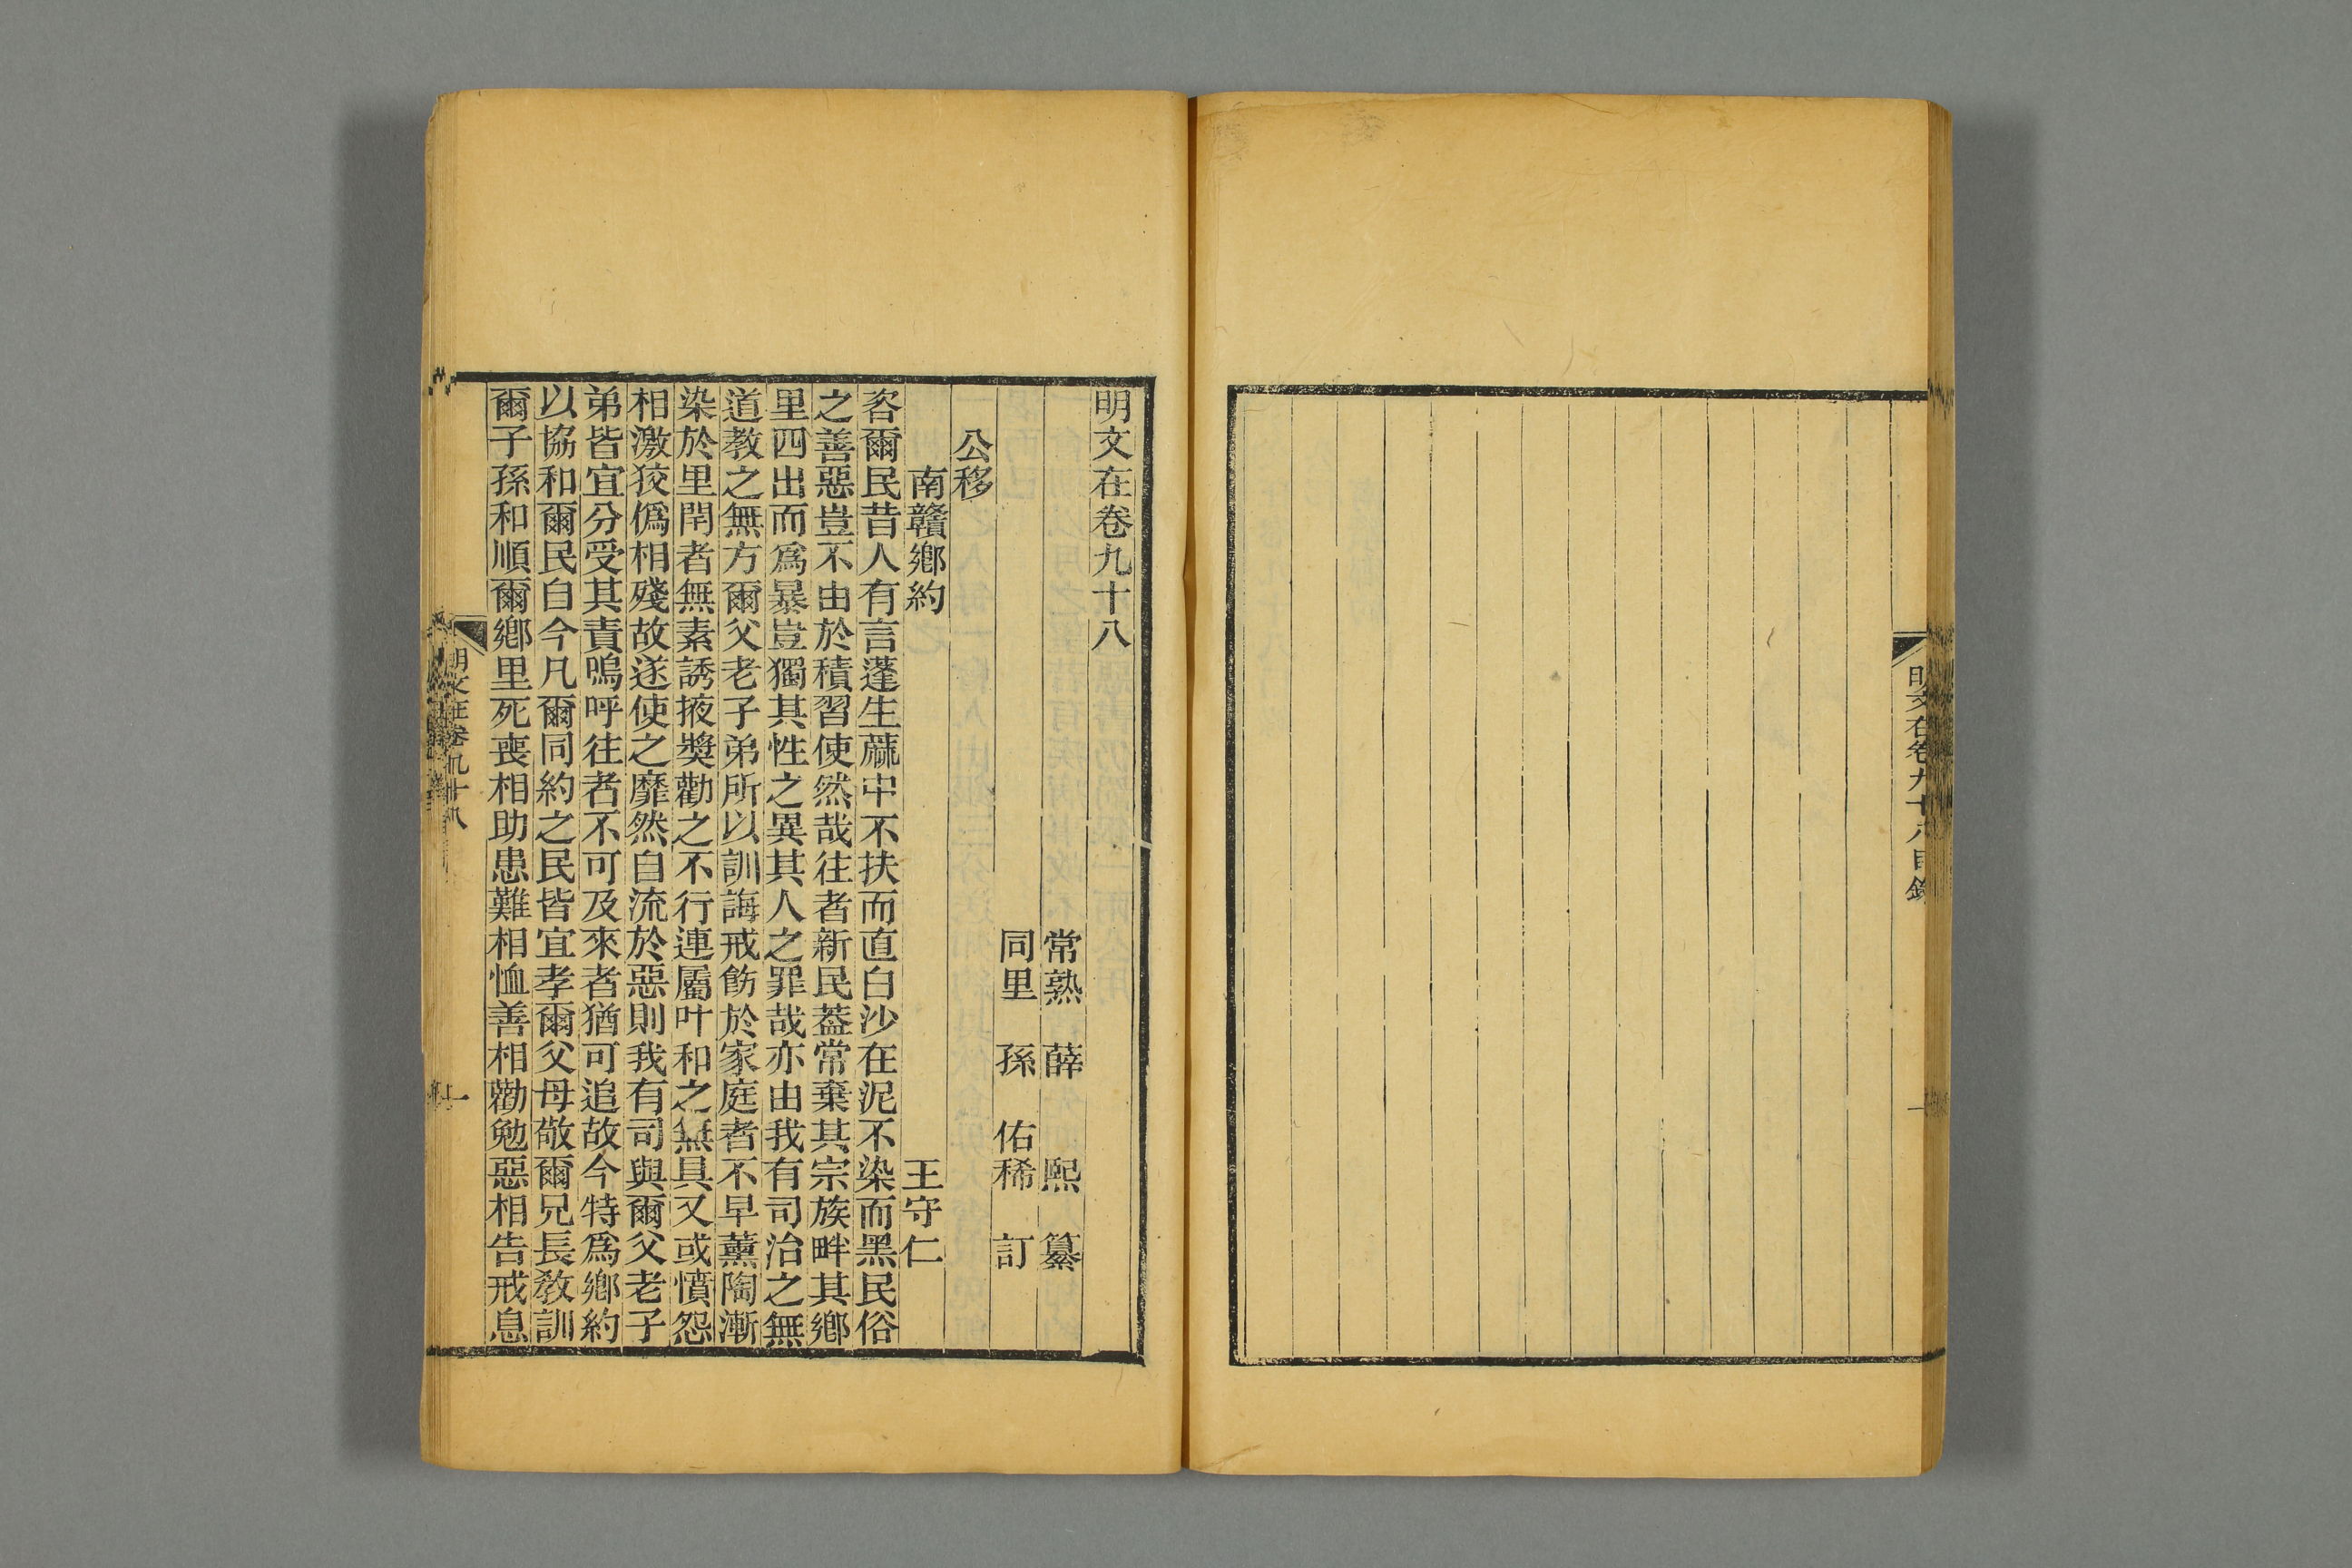 明文在卷九十八目錄
一
明文在卷九十八
常熟 薛 熙 纂
同里 孫 佑稀 訂
公移
南贛鄉約 王守仁
咨爾民昔人有言蓬生蔴中不扶而直白沙在泥不染而黑民俗
之善惡豈不由於積習使然哉往者新民葢常棄其宗族畔其鄉
里四出而爲暴豈獨其性之異其人之罪哉亦由我有司治之無
道教之無方爾父老子弟所以訓誨戒飭於家庭者不早薰陶漸
染於里閈者無素誘掖奬勸之不行連屬叶和之無具又或憤怨
相激狡僞相殘故遂使之靡然自流於惡則我有司與爾父老子
弟皆宜分受其責嗚呼往者不可及來者猶可追故今特爲鄉約
以協和爾民自今凡爾同約之民皆宜孝爾父母敬爾兄長教訓
爾子孫和順爾鄉里死喪相助患難相恤善相勸勉惡相告戒息
明文在卷九十八
一